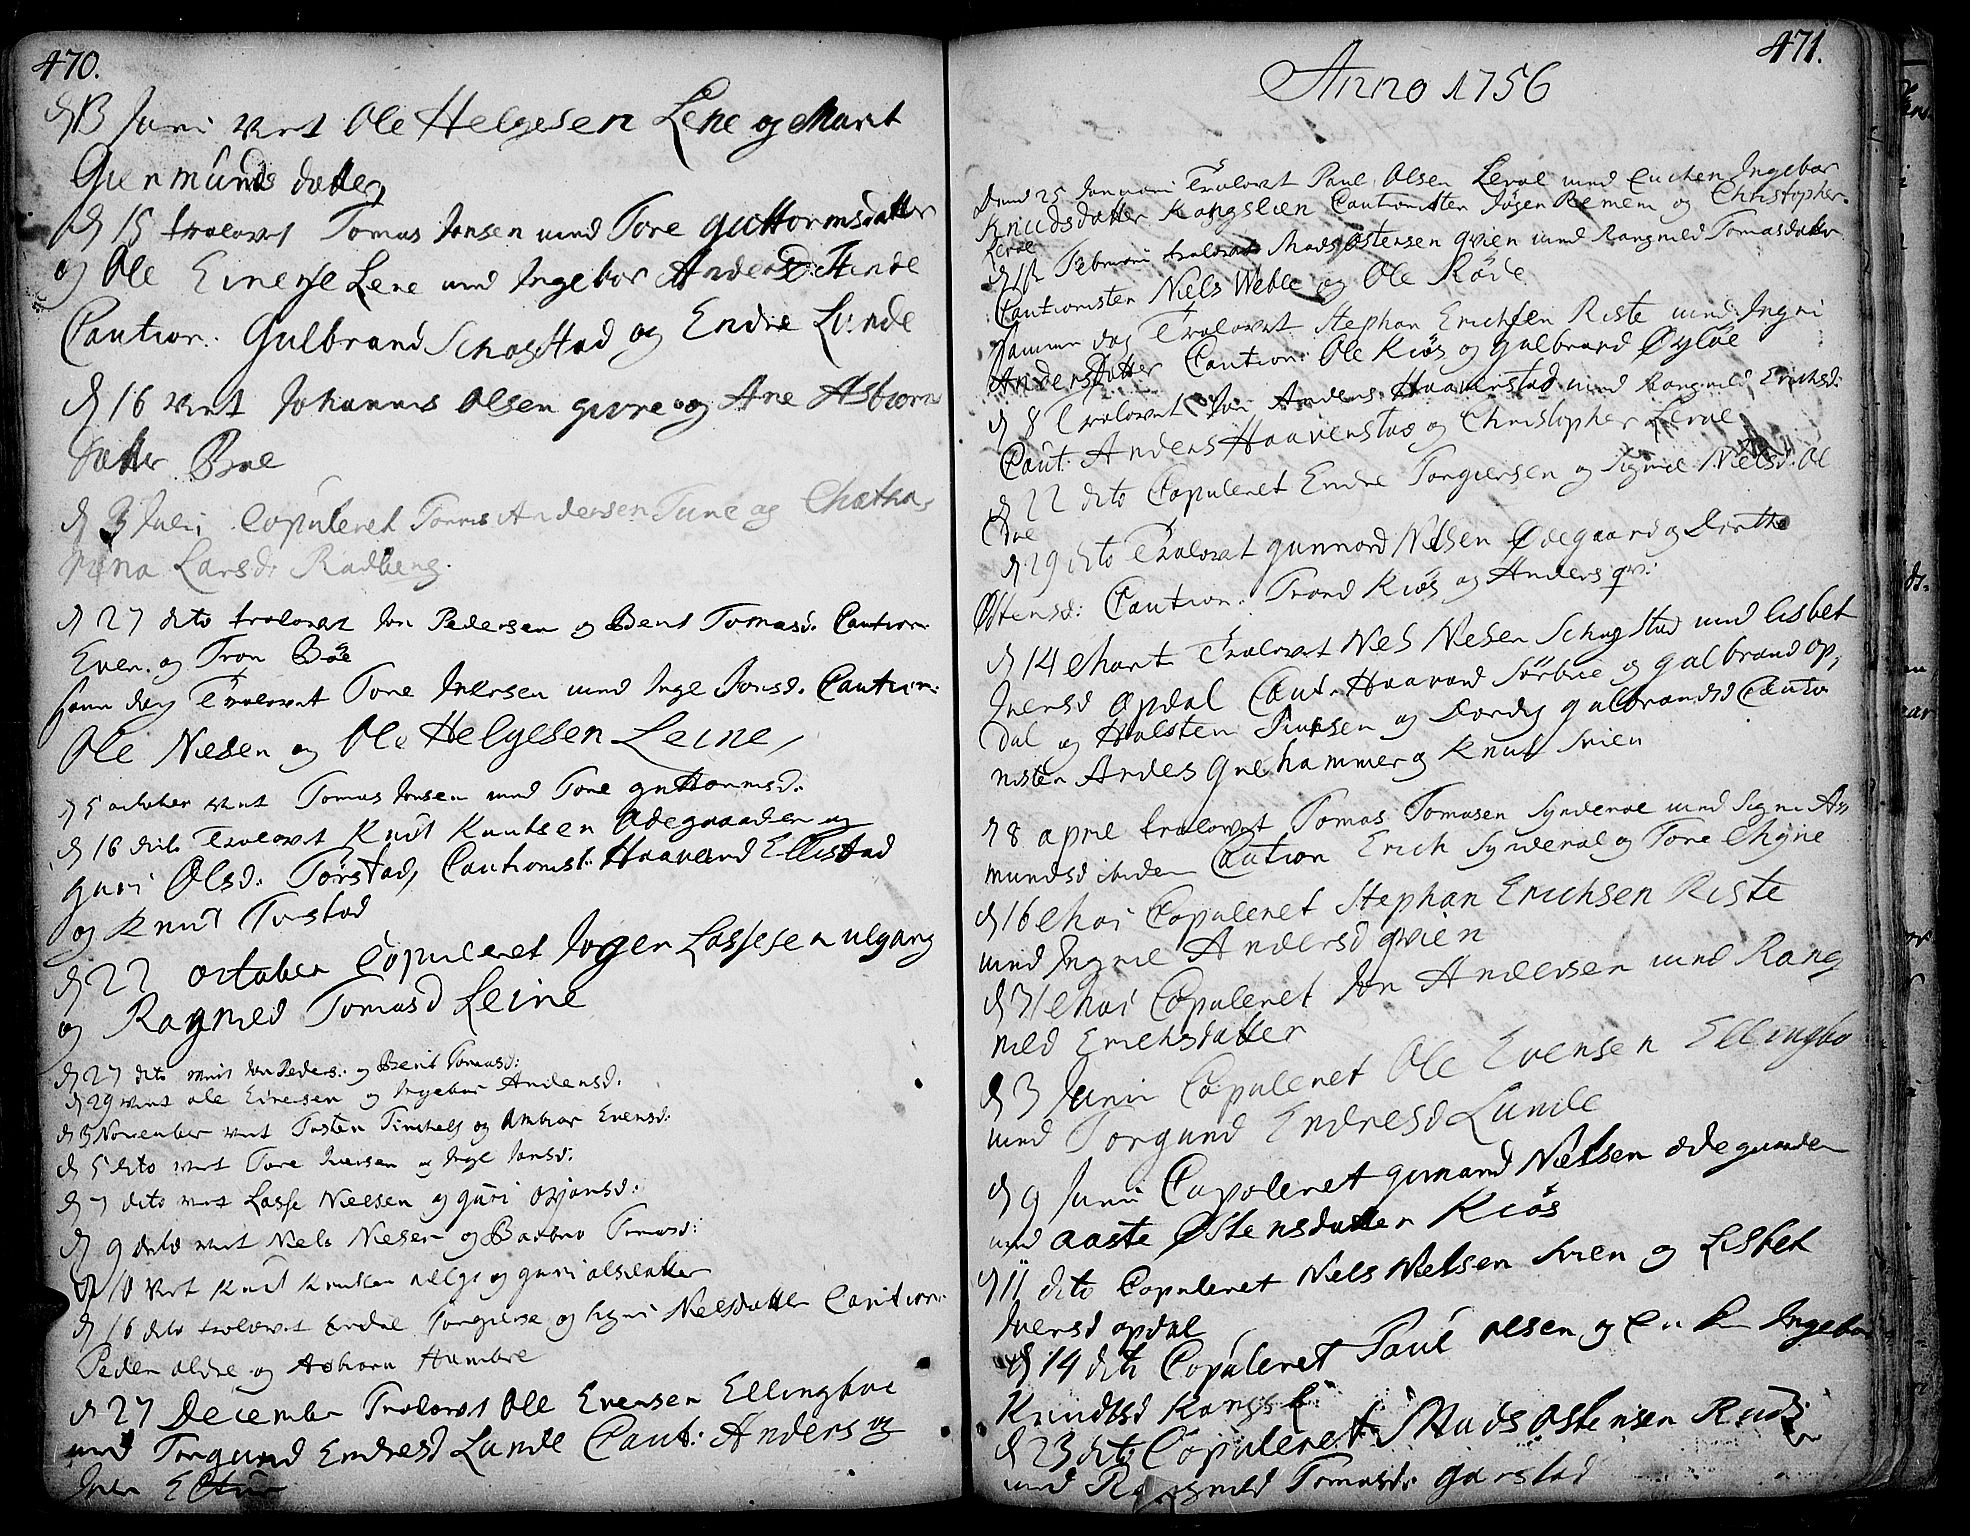 470.
d 13 Juni viet Ole Helgesen Lene og Marit
Gienmunds datter
d 15 trolovet Tomas Jonsen med Tore Guttormsdatter
og Ole Einerse Lene med Ingebor Andersd
Caution: Gulbrand Schagstad og Endre Lunde
d 16 viet Johannes Olsen og Ane Asbiørns
datter Bøe
d 3 Juli Copuleret Tomas Andersen Tune og Chatha,
rina Larsd: Rudberg.
d 27 dito trolovet Jon Pedersen og Berit Tomasd. Caution:
Even. og Tron Bøe
samme dag Trolovet Tore Iversen med Inge Jonsd. Caution:
Ole Nielsen og Ole Helgesen Leine,
d 5 october viet Tomas Jonsen med Tore Guttormsd.
d 16 dito Trolovet Knut Knutsen Ødegaarden og
guri Olsd: Torstad, Cautionist: Haavard Ellestad
og Knut Torstad
d 22 october Copuleret Joger Lassesen ulgang
og Ragned Tomasd Leine
d 27 dito viet Jon Peders: og Berit Tomasd:
d 29 viet ole Einersen og Ingebor Andersd.
d 3 November viet Tosten og Ambior Evensd:
d 5 dito viet Tore Iversen og Inge Jonsd:
d 7 dito viet Lasse Nielsen og guri
d 9 dito viet Niels Nielsen og Barbro Tomasd:
d 10 viet Knut Knutsen og guri olsdatter
d 16 dito trolovet Endre Torgierse og Signi Nielsdatter Caution:
Peder oldre og Asbiorn Hambre
d 27 December Trolovet Ole Evensen Ellingboe
med Torgund Endresd Lunde Caut: Anders og
Iver
471.
Anno 1756
Dend 25 Januari Trolovet Paul Olsen Lerol med Enchen Ingebor
Knudsdatter Kongslien Cautionisten og Christopher
Lerol
Februari trolovet Mads Østensen qvien med Rangned Tomasdatter
Cautionisten Niels Weble og Ole Røde
samme dag Trolovet Stephan Erichsen Riste med Ingri
Andersdatter Caution: Ole Kiøs og gulbrand Øyløe
d 8 Trolovet Jon Anders: Haavenstad med Rangned Erichsd:
Caut. Anders Haavenstad og Christopher Lerol
d 22 dito Copuleret Endre Torgiersen og Signe Nielsd. Ol
droe
d 29 dito Trolovet gunnord Nilsen Ødegaard og Dorthe
Østensd: Caution: Trond Kiøs og Anders qv:
d 14 Marti Trolovet Nels Nelsen Schagstad med lisbet
Iversd Opdal Caut. Haavard Sörboe og gulbrand op,
dal og Halsten og Dordy gulbrandsd Cautio
nisten Anders Gnehammer og Knut Svien
d 8 april trolovet Tomas Tomasen Synderol med Signe As
mundsd ibidem Caution Erich Synderol og Tore Thyne
d 16 Maj Copuleret Stephan Erichsen Riste
med Ingrie Andersd qvien
d 31 Maj Copuleret Jon Andersen med Rang
ned Erichsdatter
d 3 Juni Copuleret Ole Evensen Ellingbo
med Torgund Endresd Lunde
d 9 Juni Copuleret gunnord Nielsen ødegaarden
med aaste Østensdatter Kiøs
d 11 dito Copuleret Nels Nelsen Svien og Lisbet
Iversd opdal
d 14 dito Copuleret Paul olsen og Ingebor
Knudtsd Kongsl:
d 23 dito Copuleret Mads østensen Rudi
med Rangned Tomasd: garstad